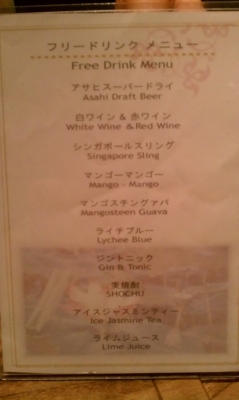 フリードリンク メニュー
Free Drink Menu
アサヒスーパードライ
Asahi Draft Beer
白ワイン & 赤ワイン
White Wine & Red Wine
シンガポールスリング
Singapore Sling
マンゴーマンゴー
Mango - Mango
マンゴスチングァバ
Mangosteen Guava
ライチブルー
Lychee Blue
ジントニック
Gin & Tonic
麦焼酎
SHOCHU
アイスジャスミンティー
Ice Jasmine Tea
ライムジュース
Lime Juice